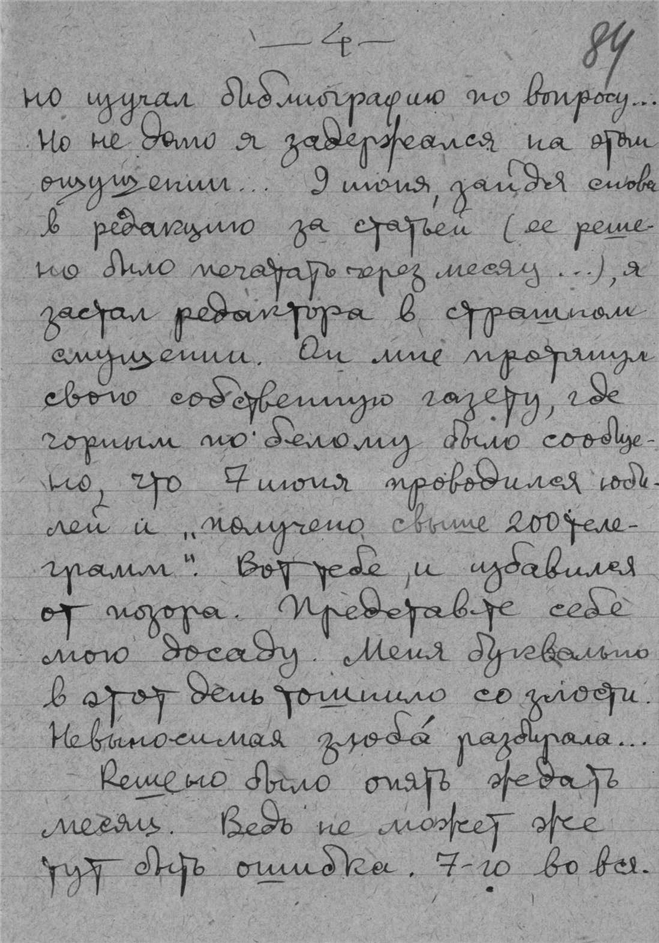 — 4 —
84
но изучал библиографию по вопросу...
Но не долго я задержался на этом
ощущении... 9 июня, зайдя снова
в редакцию за статьей (ее реше-
но было печатать через месяц...), я
застал редактора в страшном
смущении. Он мне протянул
свою собственную газету, где
чорным по белому было сообще-
но, что 7 июня проводился юби-
лей и „получено свыше 200 теле-
грамм". Вот тебе, и избавился
от позора. Представьте себе
мою досаду. Меня буквально
в этот день тошнило со злости.
Невыносимая злоба́ разбирала...
Решено было опять ждать
месяц. Ведь не может же
тут быть ошибка. 7-го во вся-